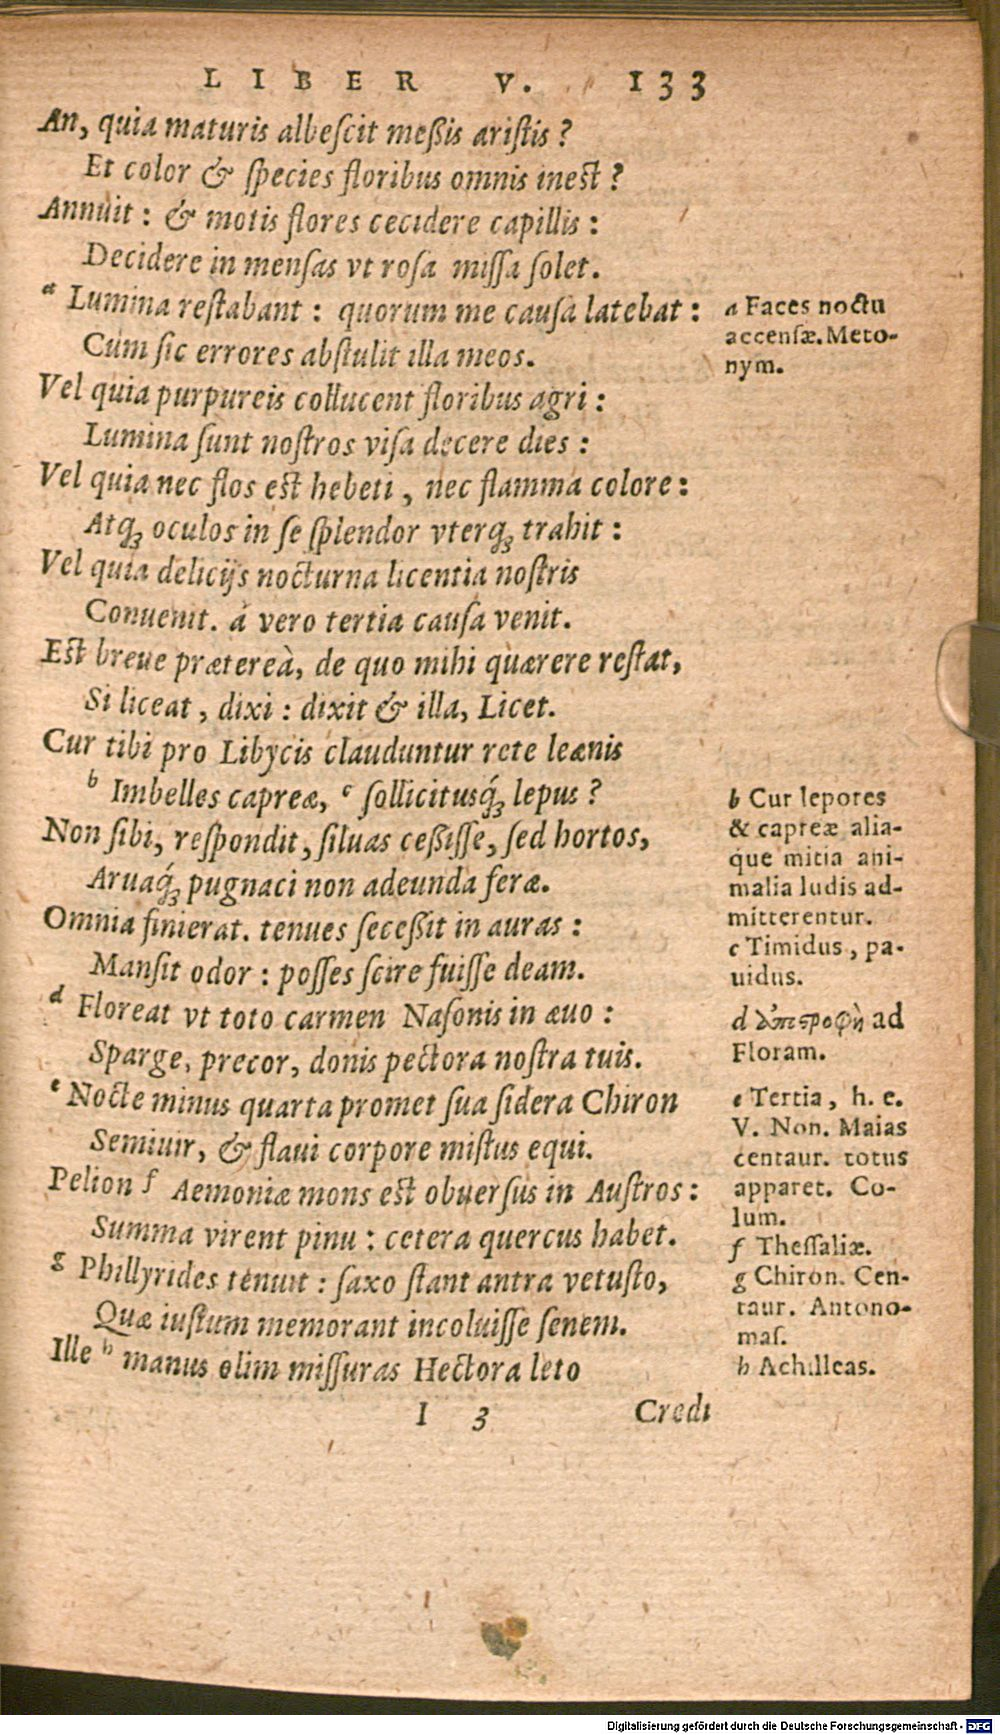 LIBER V. 133
An, quia maturis albeſcit meßis ariſtis?
Et color & ſpecies floribus omnis ineſt?
Annuit: & motis flores cecidere capillis:
Decidere in menſas vt roſa miſſa ſolet.
a Lumina reſtabant: quorum me cauſa latebat:
Cum ſic errores abſtulit illa meos.
Vel quia purpureis collucent floribus agri:
Lumina ſunt noſtros viſa decere dies:
Vel quia nec flos eſt hebeti, nec flamma colore:
Atq́ꝫ oculos in ſe ſplendor vterq́ꝫ trahit:
Vel quia delicijs nocturna licentia noſtris
Conuenit. á vero tertia cauſa venit.
Eſt breue prætereà, de quo mihi quærere reſtat,
Si liceat, dixi: dixit & illa, Licet.
Cur tibi pro Libycis clauduntur rete leænis
b Imbelles capreæ, c ſollicitusq́ꝫ lepus?
Non ſibi, reſpondit, ſiluas ceßiſſe, ſed hortos,
Aruaq́ꝫ pugnaci non adeunda feræ.
Omnia finierat. tenues ſeceßit in auras:
Manſit odor: poſſes ſcire fuiſſe deam.
d Floreat vt toto carmen Naſonis in æuo:
Sparge, precor, donis pectora noſtra tuis.
e Nocte minus quarta promet ſua ſidera Chiron
Semiuir, & flaui corpore miſtus equi.
Pelion f Aemoniæ mons eſt obuerſus in Auſtros:
Summa virent pinu: cetera quercus habet.
g Phillyrides tenuit: ſaxo ſtant antra vetuſto,
Quæ iuſtum memorant incoluiſſe ſenem.
Ille h manus olim miſſuras Hectora leto
I 3 Credi
a Faces noctu
accenſæ. Meto-
nym.
b Cur lepores
& capreæ alia-
que mitia ani-
malia ludis ad-
mitterentur.
c Timidus, pa-
uidus.
d ἀποϛροφὴ ad
Floram.
e Tertia, h. e.
V. Non. Maias
centaur. totus
apparet. Co-
lum.
f Theſſaliæ.
g Chiron. Cen-
taur. Antono-
maſ.
h Achilleas.
Digitalisierung gefördert durch die Deutsche Forschungsgemeinschaft - DFG